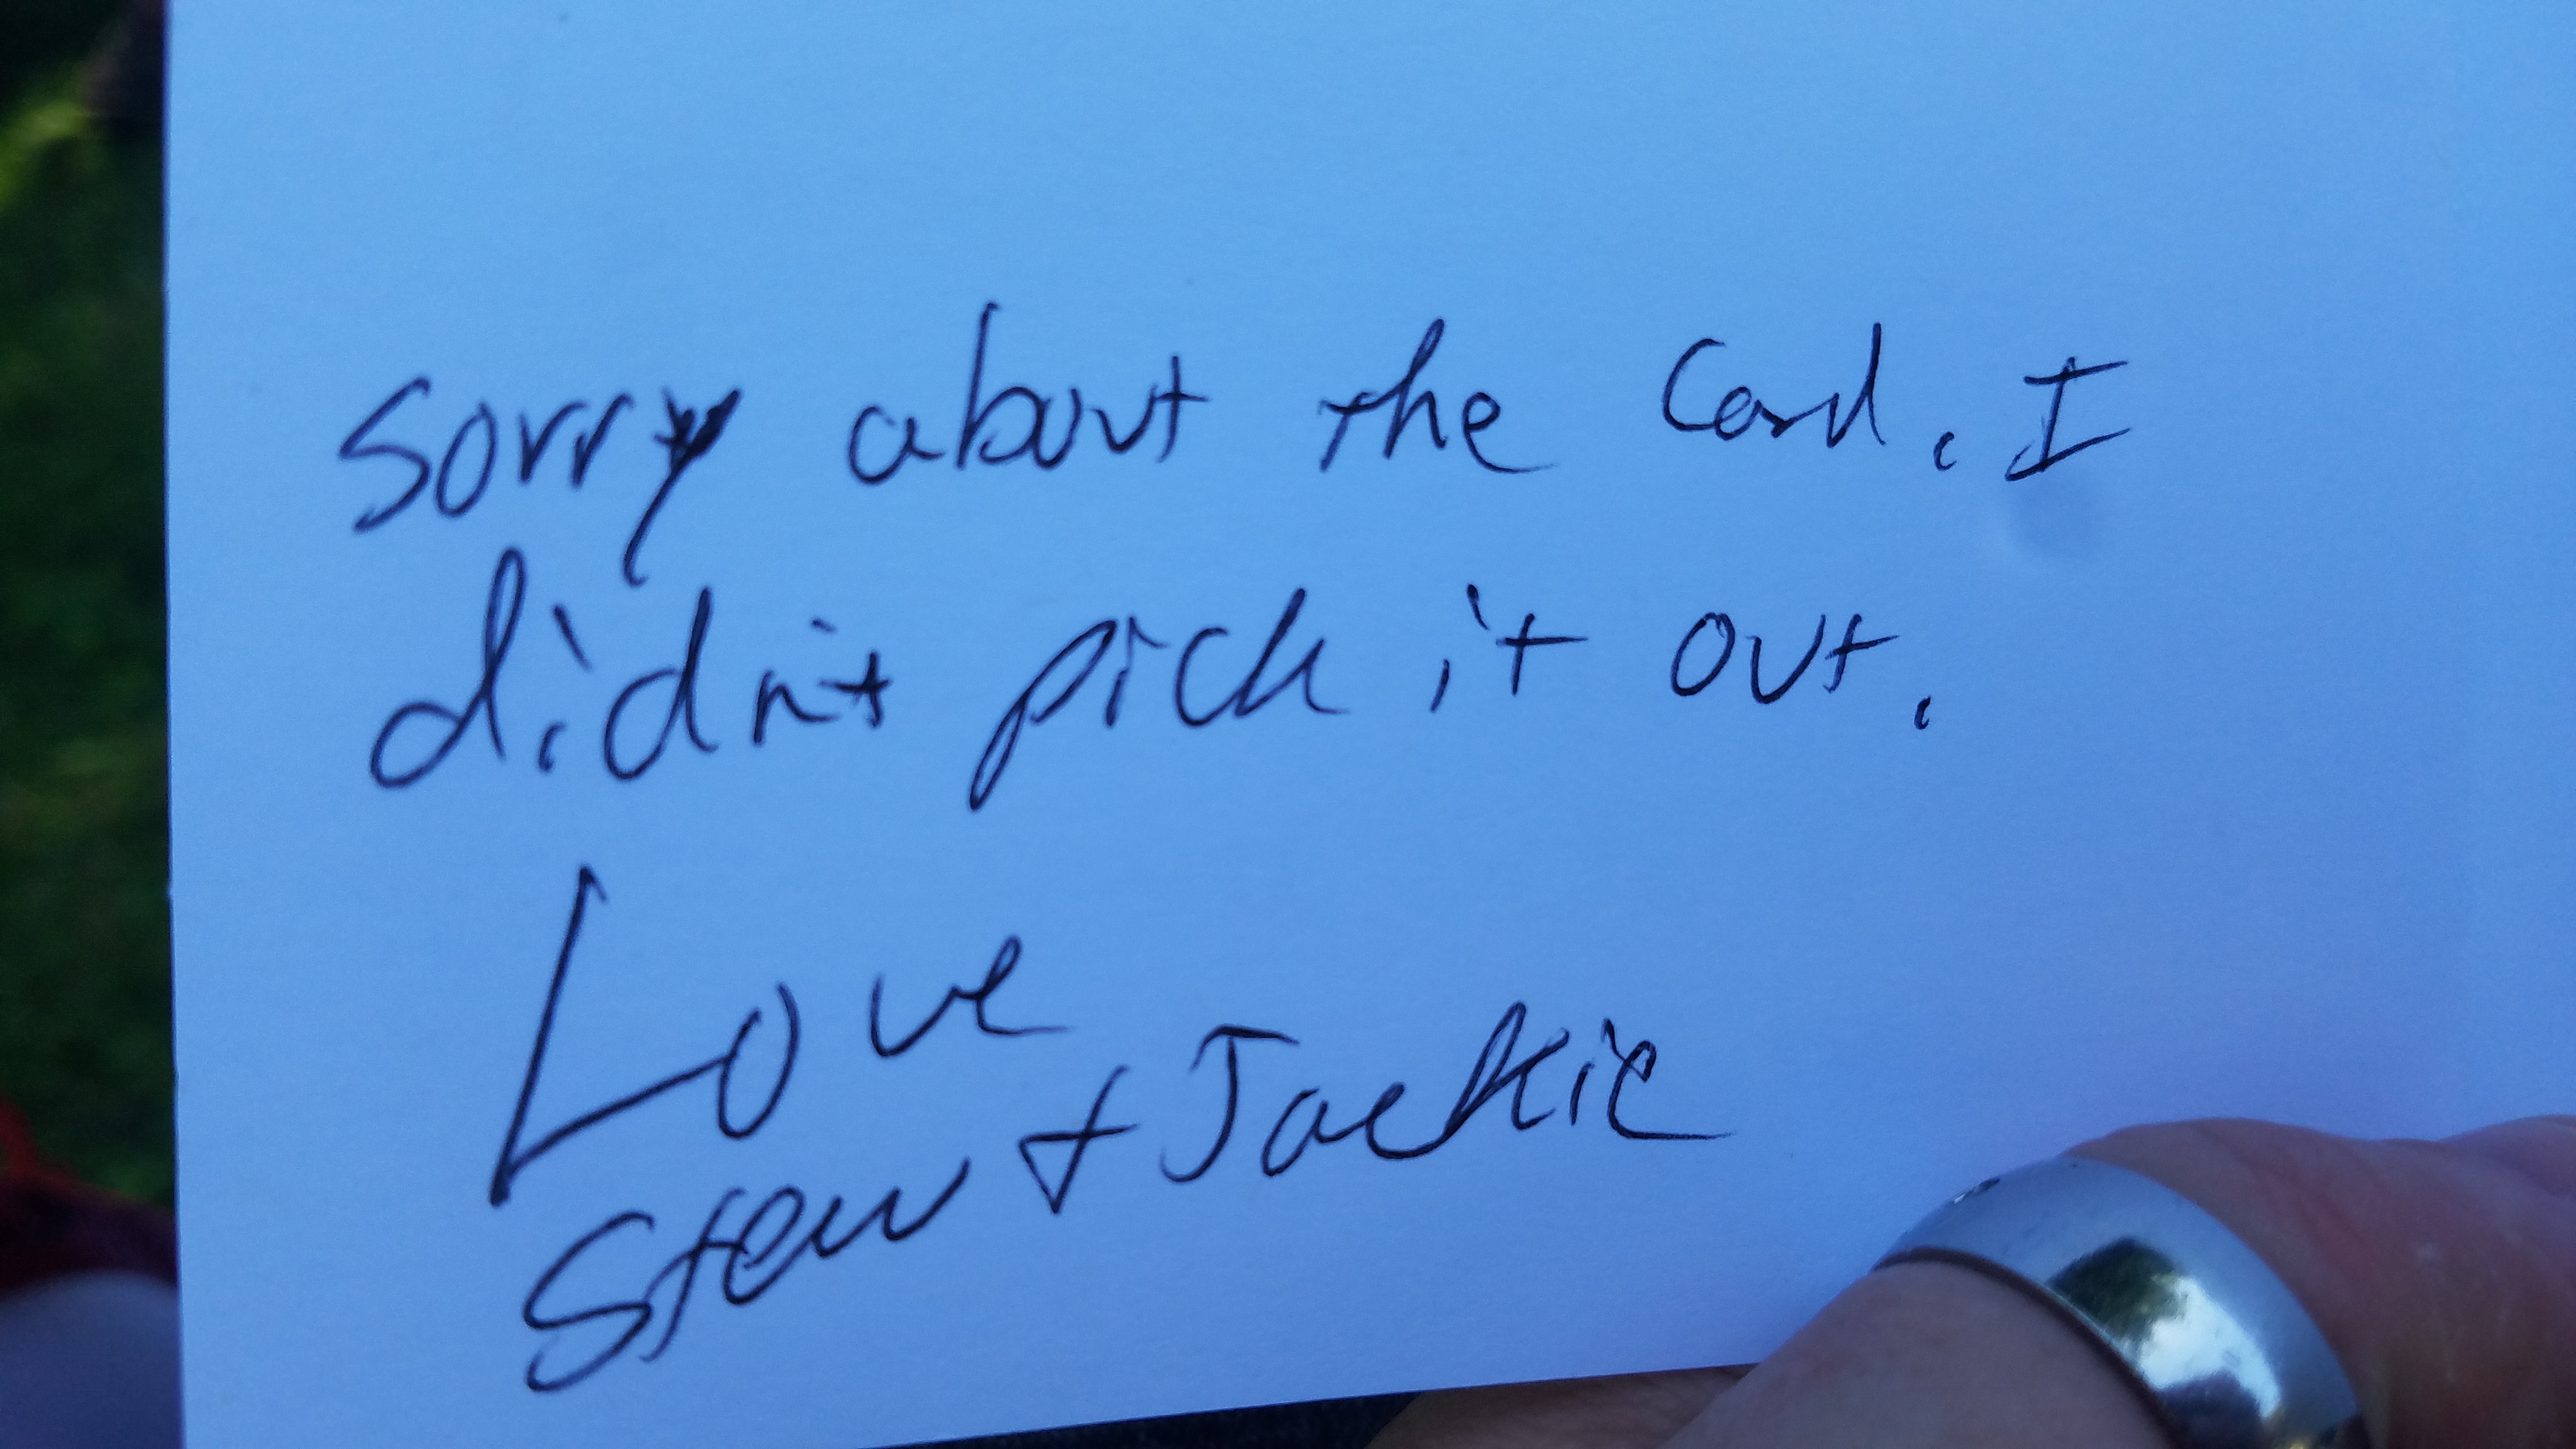 Sorry about the Card. I
didn't pick it out.
Love
Stew + Jackie